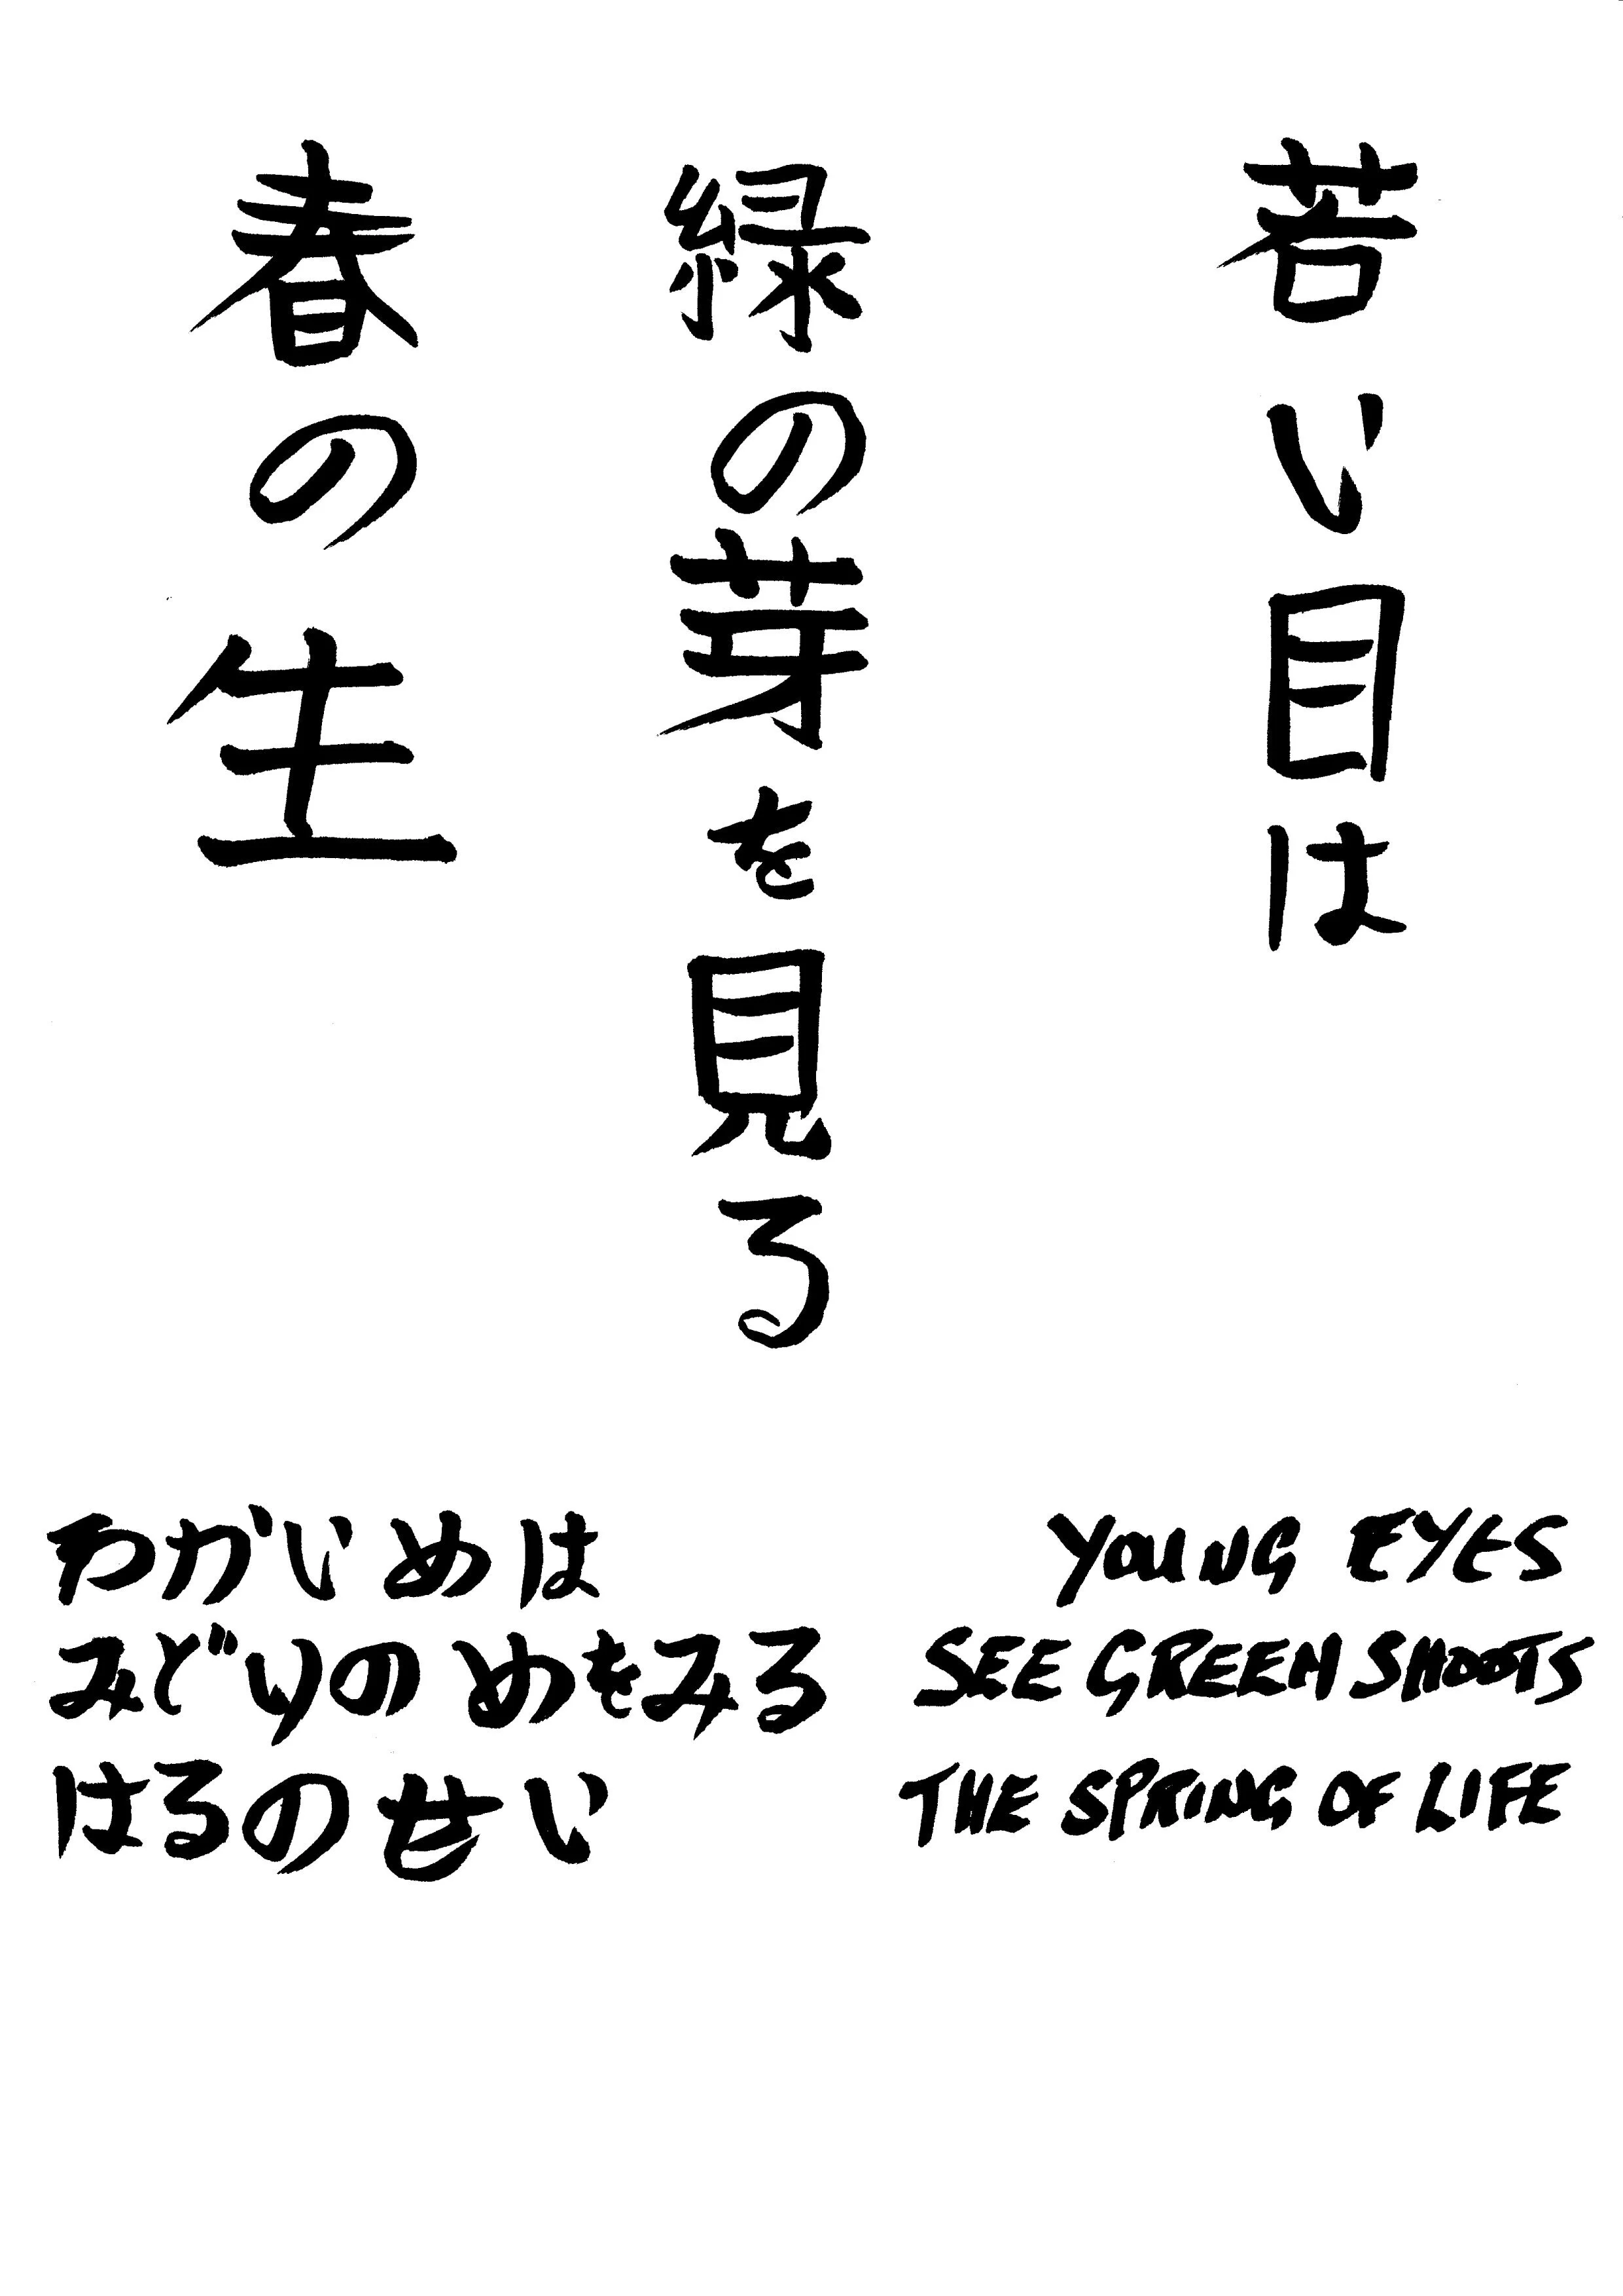 若い目は
緑の芽を見る
春の生
わかいめは
みどりのめをみる
はるのせい
YOUNG EYES
SEE GREEN SHOOTS
THE SPRING OF LIFE